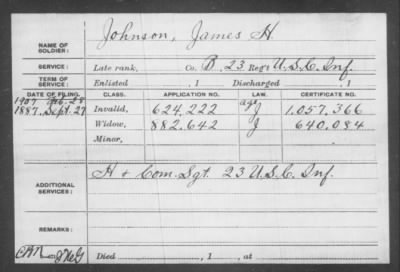 NAME OF SOLDIER: Johnson, James H.
SERVICE: Late rank, Co. B, 23 Reg't U.S.C. Inf.
TERM OF SERVICE: Enlisted , 1 Discharged , 1
DATE OF FILING. CLASS. APPLICATION NO. LAW. CERTIFICATE NO.
1907 Feb. 28 Invalid, 624.222 age 1.057.366
1887 Sept. 27 Widow, 882.642 J 640.084
Minor,
ADDITIONAL SERVICES: H + Com. Sgt. 23 U.S.C. Inf.
REMARKS:
Died , 1 , at